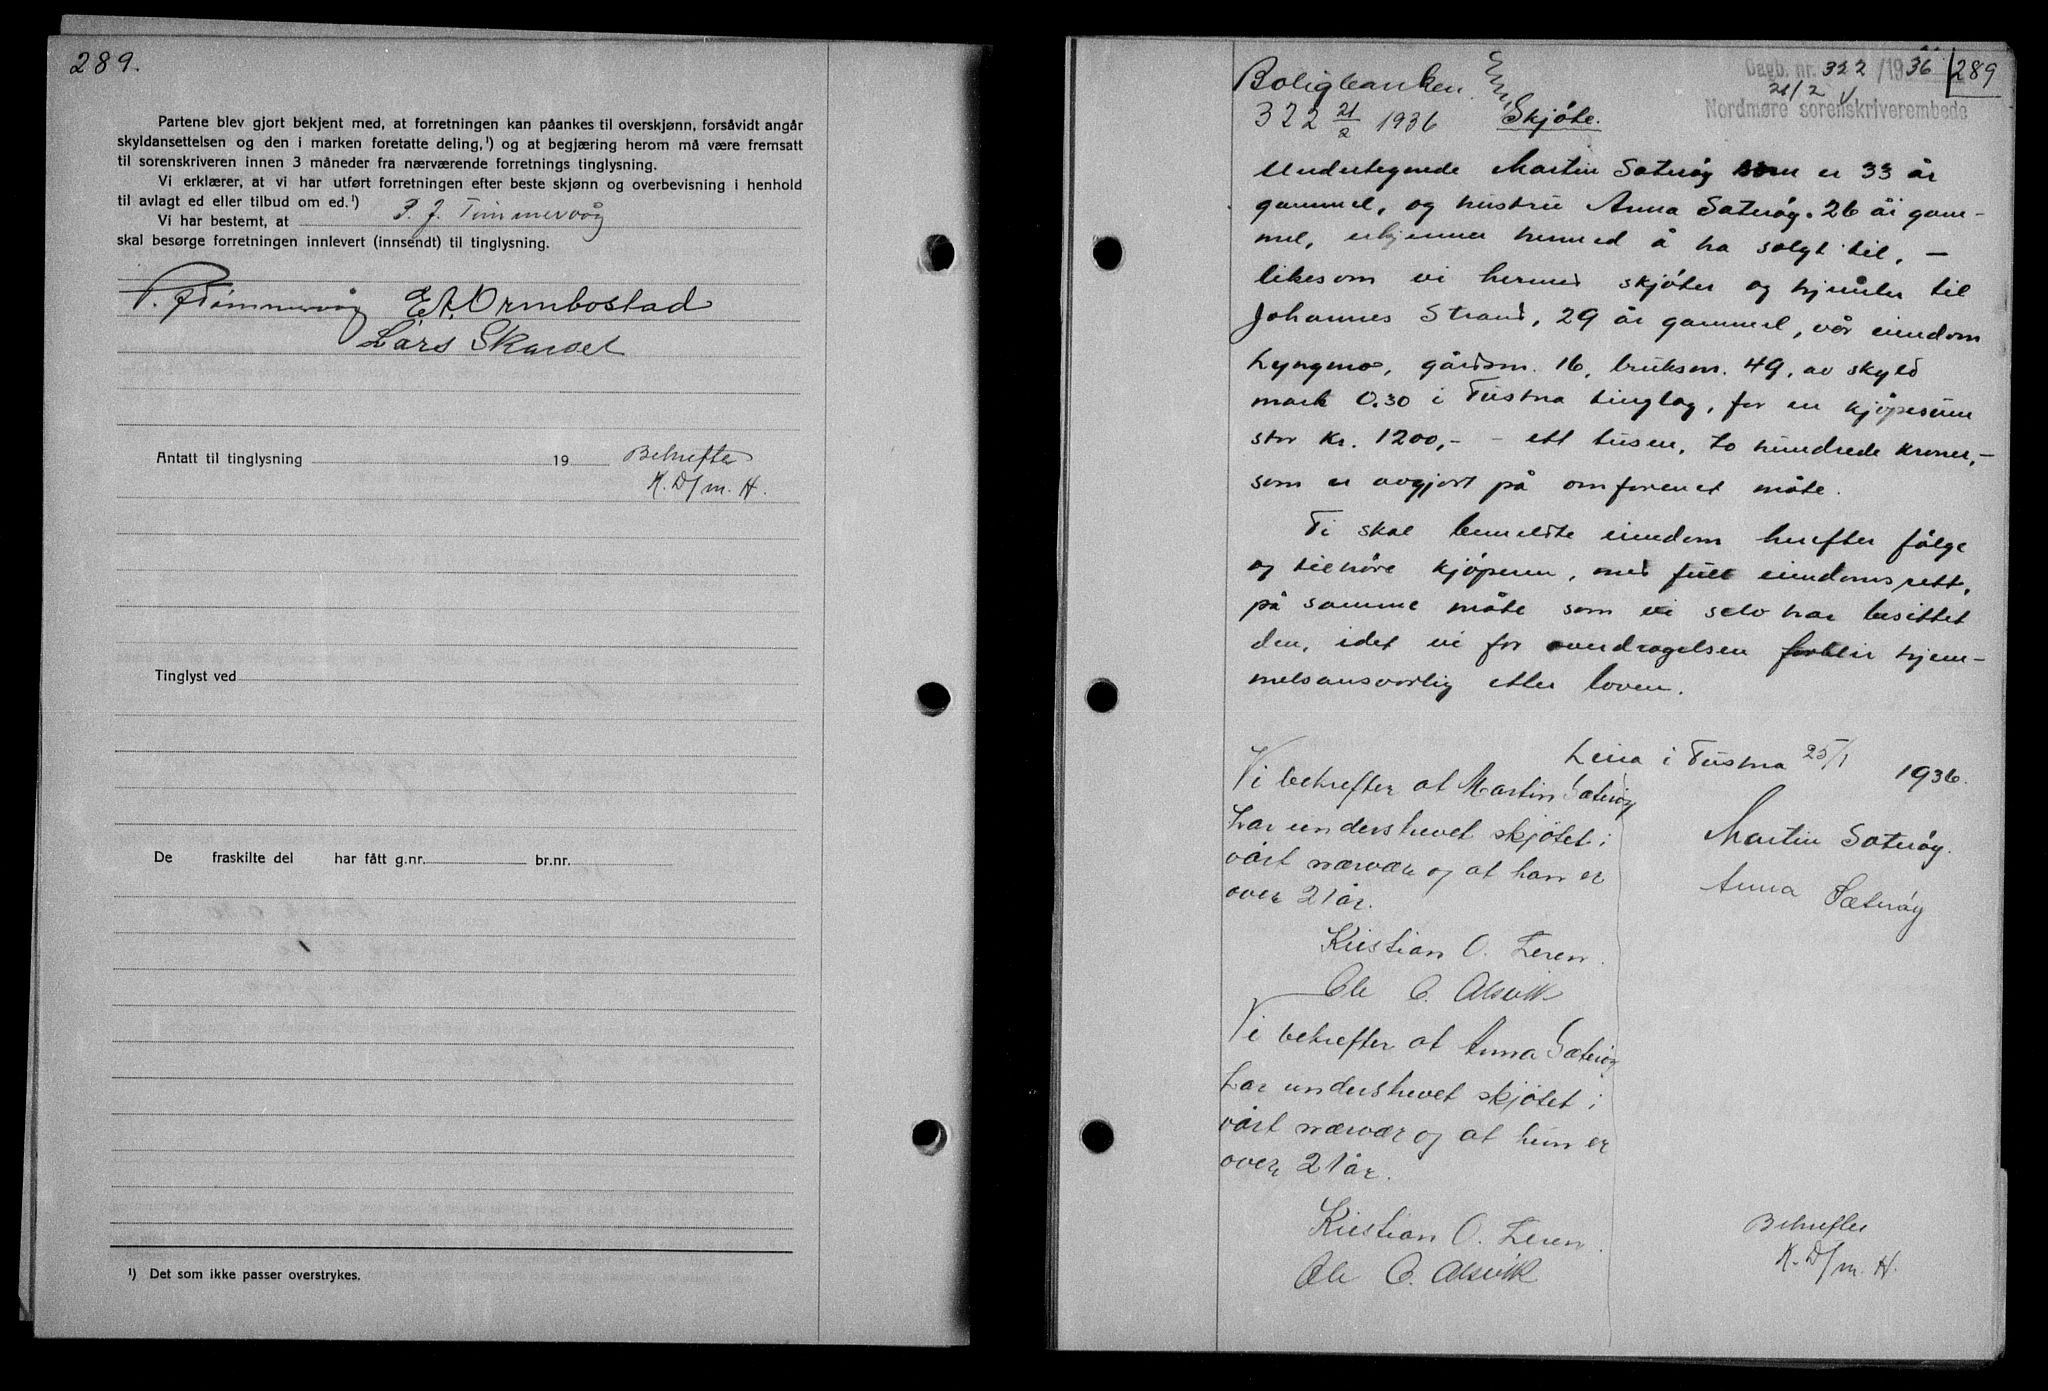 289.
Partene blev gjort bekjent med, at forretningen kan påankes til overskjønn, forsåvidt angår
skyldansettelsen og den i marken foretatte deling,¹) og at begjæring herom må være fremsatt
til sorenskriveren innen 3 måneder fra nærværende forretnings tinglysning.
Vi erklærer, at vi har utført forretningen efter beste skjønn og overbevisning i henhold
til avlagt ed eller tilbud om ed.¹)
Vi har bestemt, at P. J. Tømmervåg
skal besørge forretningen innlevert (innsendt) til tinglysning.
P. J. Tømmervåg E. A. Ormbostad
Lars Skarset
Antatt til tinglysning 19
Bekrefter
K. D/m. H.
Tinglyst ved
De fraskilte del har fått g.nr. br.nr.
¹) Det som ikke passer overstrykes.
Dagb. nr. 322/1936
289
21/2
Nordmøre sorenskriverembede
Boligbanken
322 21/2 1936
Skjøte.
Undertegnede Martin Sæterøy som er 33 år
gammel, og hustru Anna Sæterøy. 26 år gam-
mel, erkjenner herved å ha solgt til, -
likesom vi herved skjøter og hjemler til
Johannes Strand, 29 år gammel, vår eiendom
Lyngmo, gårdsnr. 16, bruksnr. 49, av skyld
mark 0.30 i Tustna tinglag, for en kjøpesum
stor kr. 1200,- - ett tusen, to hundrede kroner,-
som er avgjort på omforenet måte.
Ti skal bemeldte eiendom herefter følge
og tilhøre kjøperen, med full eiendomsrett,
på samme måte som vi selv har besittet
den, idet vi for overdragelsen forblir hjem-
melsansvarlig etter loven.
Leira i Tustna 25/1 1936.
Vi bekrefter at Martin Sæterøy
har underskrevet skjøtet i
vårt nærvær og at han er
over 21 år.
Martin Sæterøy.
Anna Sæterøy
Kristian O. Leren.
Ole C. Alsvik
Vi bekrefter at Anna Sæterøy
har underskrevet skjøtet i
vårt nærvær og at hun er
over 21 år.
Kristian O. Leren.
Ole C. Alsvik
Bekrefter
K. D/m. H.